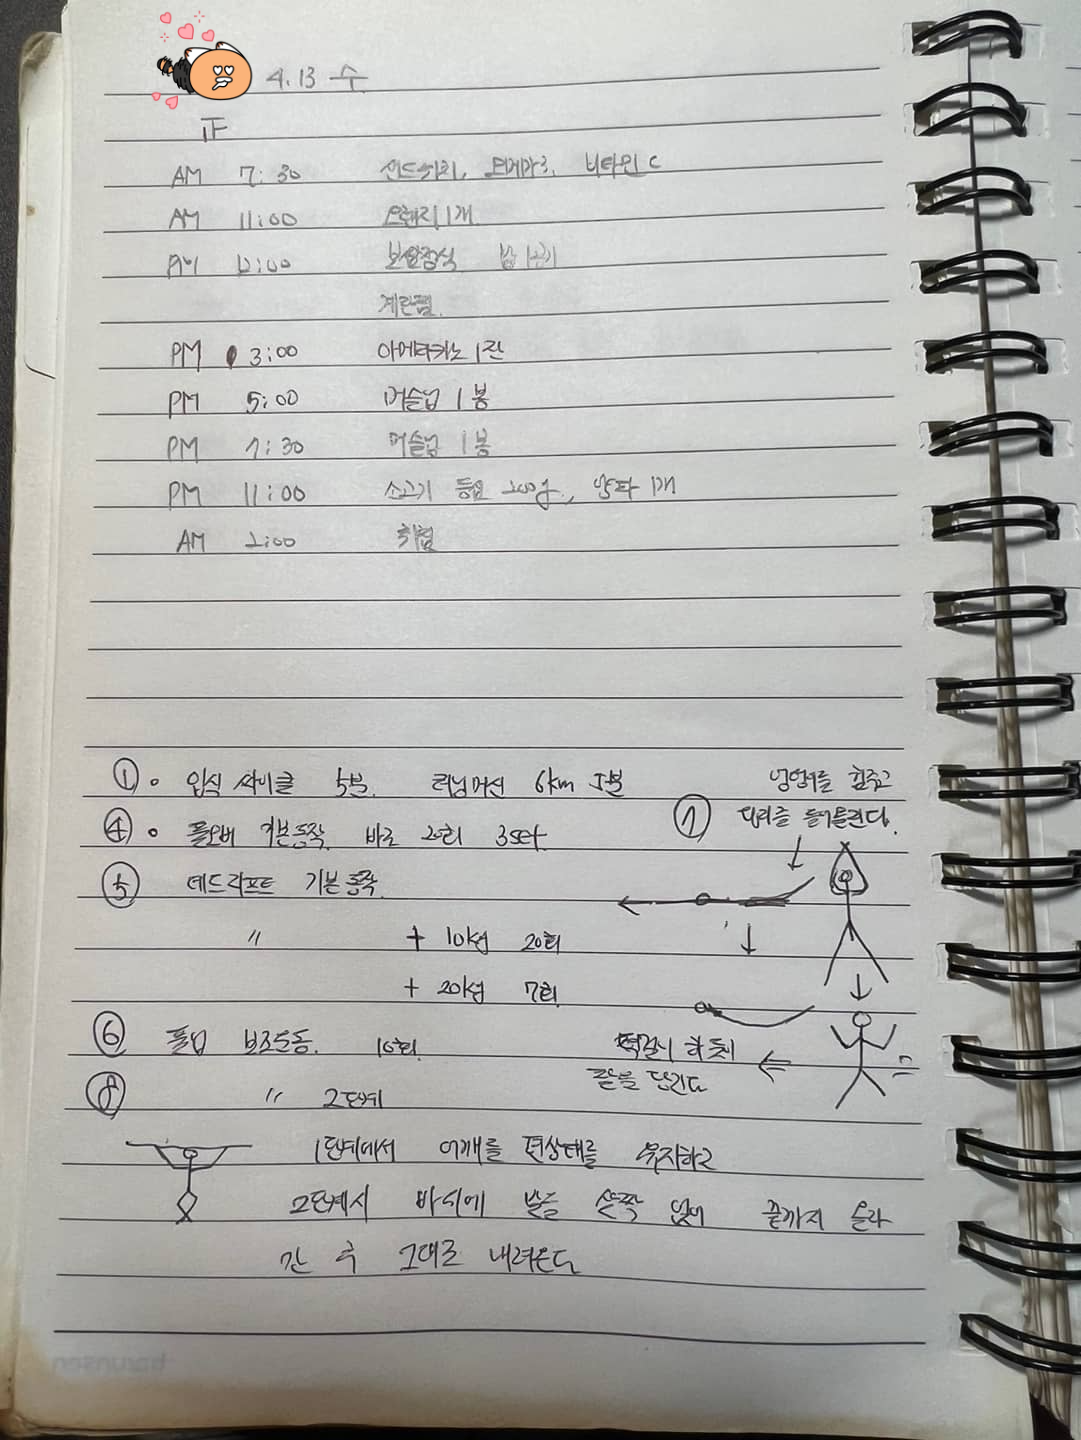 4.13 수
正
AM 7:30 샌드위치, 오메가3, 비타민 C
AM 11:00 오렌지 1개
12:00 밥 1공기
계란찜
PM 3:00 아메리카노 1잔
PM 5:00 머슬닙 1봉
PM 7:30 머슬닙 1봉
PM 11:00 소고기 등심 200g, 양파 1개
AM 2:00 취침
① 입식 싸이클 5분. 러닝머신 6km 5분
④ 풀오버 기본동작 바로 20회 3set
⑤ 데드리프트 기본동작
〃 + 10kg 20회
+ 20kg 7회
⑥ 풀업 보조운동. 10회
⑧ 〃 2단계
1단계에서 어깨를 편상태를 유지하고
2단계시 바닥에 발을 살짝 없이 끝까지 올라
간 후 그대로 내려온다
⑦ 엉덩이를 힘주고
다리를 들어올린다.
턱걸이 하듯이
팔을 당긴다
barunsen